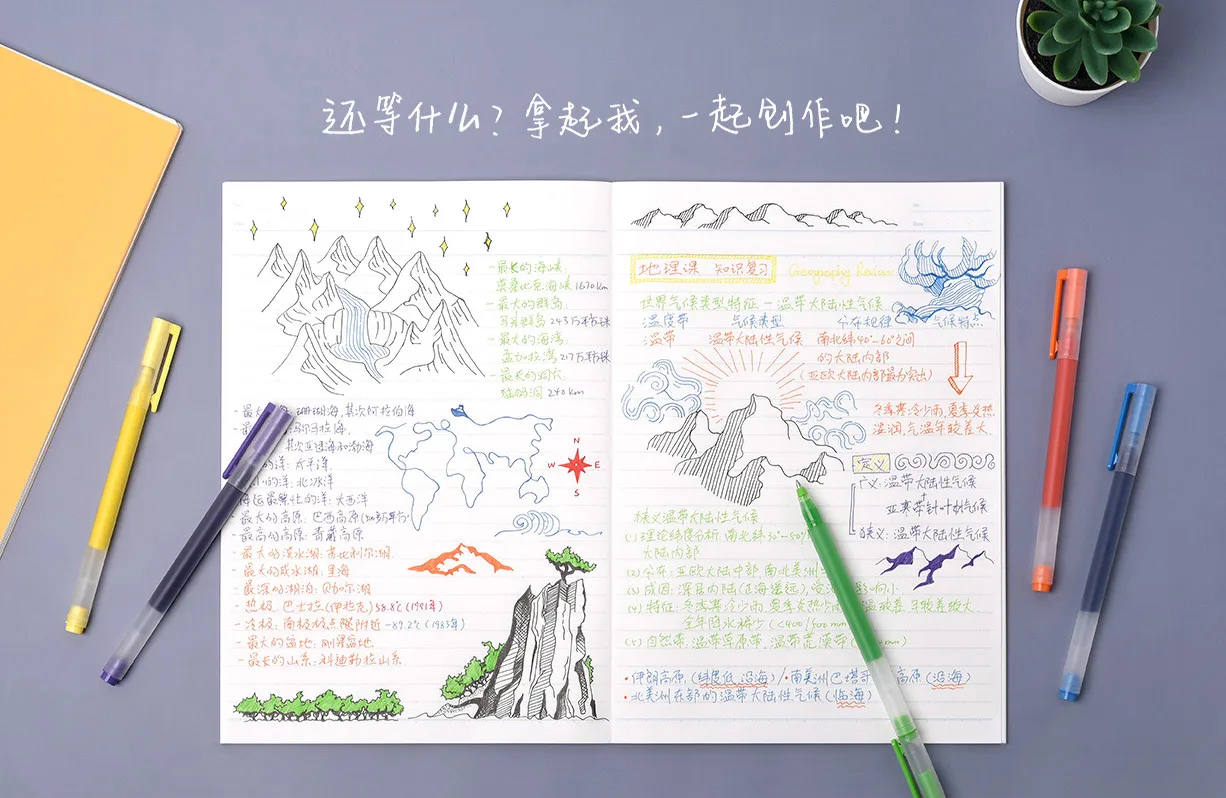 还等什么？拿起我，一起创作吧！
-最长的海峡：
莫桑比克海峡1670km
-最大的群岛：
马来群岛243万平方km
-最大的海湾：
孟加拉湾217万平方km
-最长的洞穴：
240km
珊瑚海，其次阿拉伯海
马尔马拉海，
其次亚速海和渤海
的洋：太平洋
小的洋：北冰洋
海运最繁忙的洋：大西洋
-最大的高原：巴西高原
-最高的高原：青藏高原
-最大的淡水湖：苏比利尔湖
-最大的咸水湖：里海
-最深的湖泊：贝加尔湖
-热极：巴士拉（伊拉克）58.8℃（1921年）
-冷极：南极极点附近-89.2℃（1983年）
-最大的盆地：刚果盆地
-最长的山系：科迪勒拉山系
N
W E
S
No.
Date
地理课 知识复习 Geography Review
世界气候类型特征-温带大陆性气候
温度带 气候类型 分布规律 气候特点
温带 温带大陆性气候 南北纬40°-60°之间
的大陆内部
（亚欧大陆内部最为突出）
冬季寒冷少雨，夏季炎热
湿润，气温年较差大
定义
广义：温带大陆性气候
+
亚寒带针叶林气候
狭义：温带大陆性气候
狭义温带大陆性气候
(1)理论纬度分析：南北纬
大陆内部
(2)分布：亚欧大陆中部，南北美洲
(3)成因：深居内陆（距海遥远），受 影响小
(4)特征：冬季寒冷少雨，夏季炎热少雨 温较差、年较差较大
全年降水稀少（<400/500mm
(5)自然带：温带草原带，温带荒漠带
•伊朗高原（纬度低，沿海）/•南美洲巴塔哥 高原（沿海）
•北美洲东部的温带大陆性气候（临海）